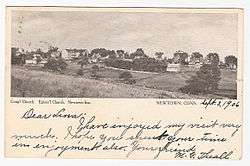 Cong'l Church Episco'l Church Newtown Inn
NEWTOWN, CONN. Sept. 2, 1906
Dear
I have enjoyed my visit very
much. I hope you spent your time
in enjoyment also. Your friend
M. G.